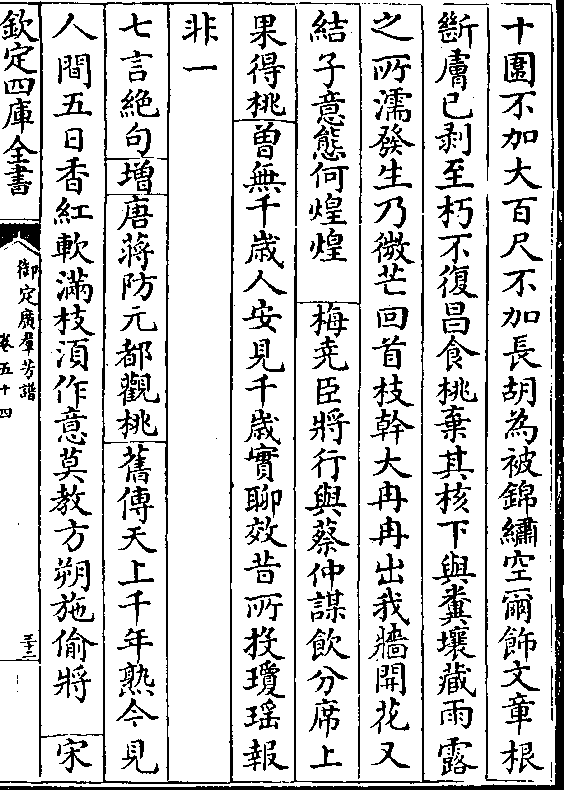 十圍不加大百尺不加長胡為被錦繡空爾飾文章根
斷膚已剥至朽不復昌食桃棄其核下與糞壤藏雨露
之所濡發生乃微芒回首枝幹大冉冉出我牆開花又
結子意態何煌煌 梅堯臣將行與蔡仲謀飲分席上
果得桃曽無千歳人安見千歳實聊效昔所投瓊瑶報
非一
七言絶句增唐蔣防元都觀桃舊傳天上千年熟今見
人間五日香紅軟滿枝湏作意莫教方朔施偷將 宋
欽定四庫全書
御定廣羣芳譜
卷五十四
三十二